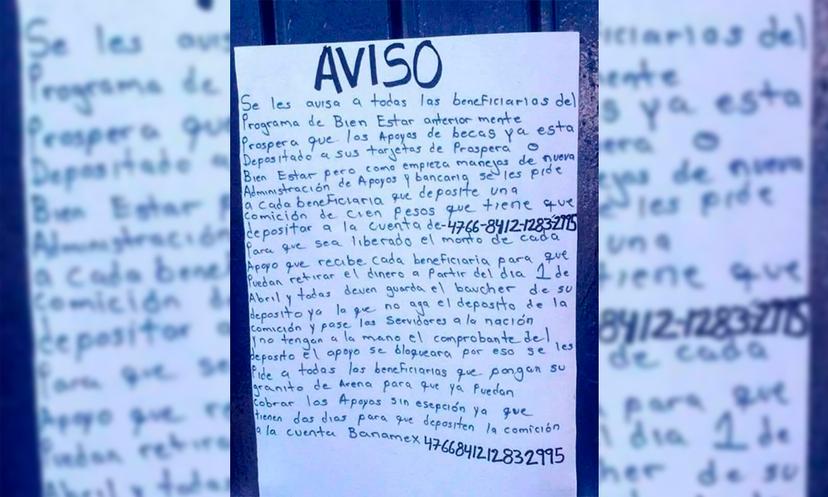 AVISO
Se les avisa a todas las beneficiarios del
Programa de Bien Estar anterior mente
Prospera que los Apoyos de becas ya esta
Depositado a sus tarjetas de Prospera o
Bien Estar pero como empieza manejos de nueva
Administración de Apoyos y bancaria se les pide
a cada beneficiaria que deposite una
comición de cien pesos que tiene que
depositar a la cuenta de-4766-8412-1283-2995
Para que sea liberado el monto de cada
Apoyo que recibe cada beneficiaria para que
Puedan retirar el dinero a Partir del dia 1 de
Abril y todas deven guarda el baucher de su
deposito ya la que no aga el deposito de la
comición y pase los Servidores a la nación
y no tengan a la mano el comprobante del
deposito el apoyo se bloqueara por eso se les
Pide a todas las beneficiarias que pongan su
granito de Arena para que ya Puedan
cobrar los Apoyos sin esepción ya que
tienen dos dias para que depositen la comición
a la cuenta Banamex 4766841212832995